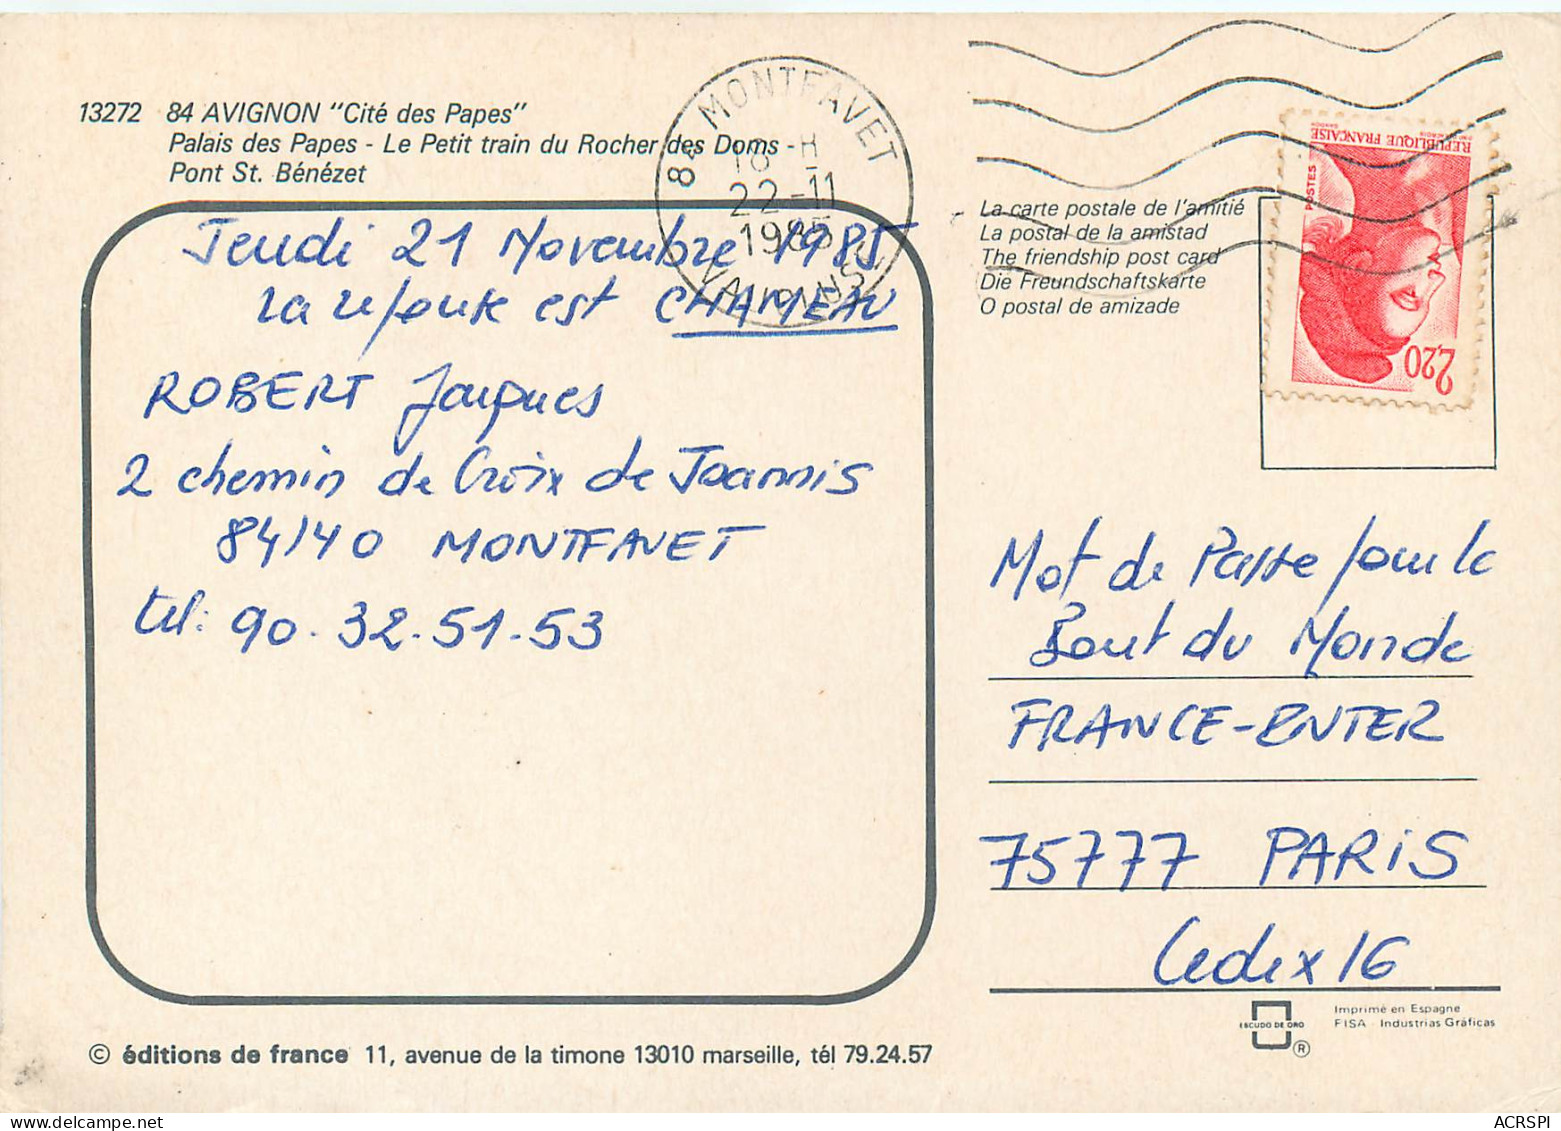 13272 84 AVIGNON "Cité des Papes"
Palais des Papes - Le Petit train du Rocher des Doms -
Pont St. Bénézet
84 MONTFAVET
18 H
22-11
1985
VAUCLUSE
Jeudi 21 Novembre 1985
La réponse est CHAMEAU
ROBERT Jacques
2 chemin de Croix de Joannis
84140 MONTFAVET
tél: 90.32.51.53
© éditions de france 11, avenue de la timone 13010 marseille, tél 79.24.57
REPUBLIQUE FRANÇAISE
POSTES
2,20
La carte postale de l'amitié
La postal de la amistad
The friendship post card
Die Freundschaftskarte
O postal de amizade
Mot de Passe pour le
Bout du Monde
FRANCE-INTER
75777 PARIS
Cedex 16
ESCUDO DE ORO
®
Imprimé en Espagne
FISA - Industrias Gráficas
ACRSPI